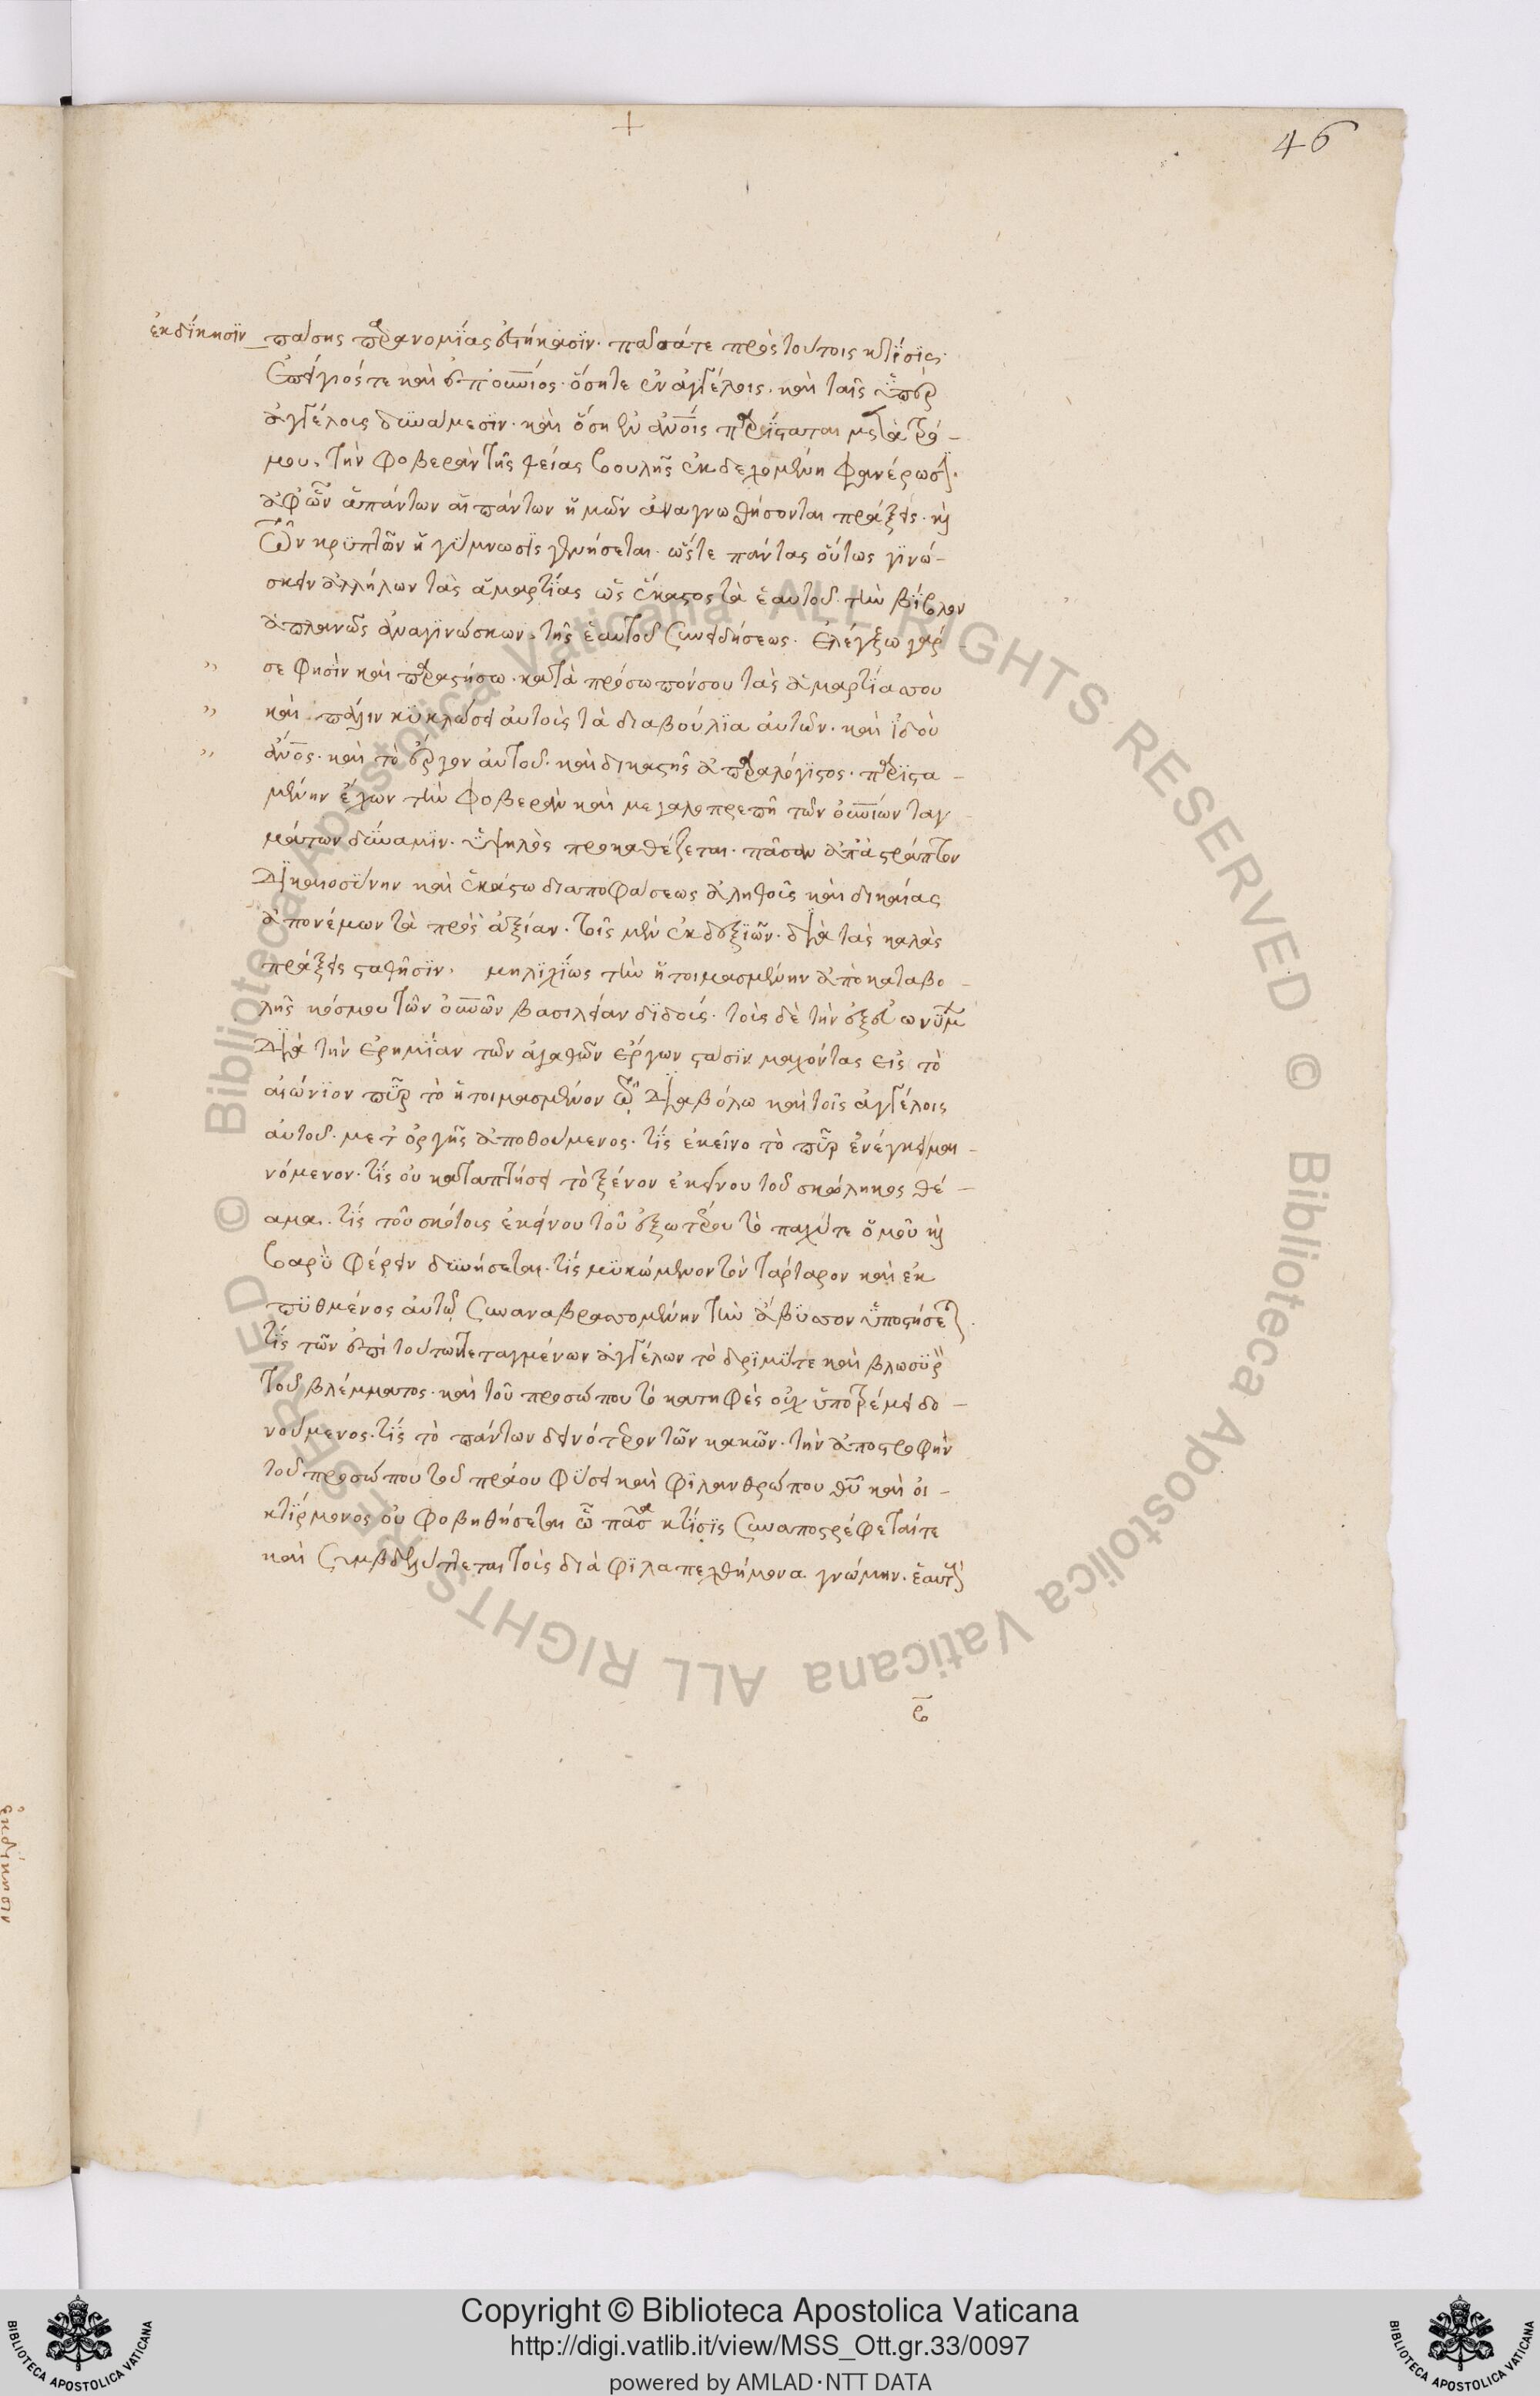 46
ἐκδίκησϊν πάσης παρανομΐας ἑστήκασϊν. πᾶσά τε πρὸς τούτοις κτίσις.
ἐπίγιός τε καὶ ἐπουνιός. ὅση τε ἐν ἀγγέλοις. καὶ ταῖς ὑπὲρ
ἀγγέλοις δϋνάμεσϊν. καὶ ὅση ἐν ἀνοις παρΐσταται μετὰ τρό-
μου, τὴν φοβερὰν τῆς θείας βουλῆς ἐκδεχομένη φανέρωσιν.
ἀφ' ὧν ἁπάντων αἱ πάντων ἡμῶν ἀναγνωσθήσονται πράξεις. καὶ
τῶν κρϋπτῶν ἡ γϋμνωσϊς γενήσεται. ὥστε πάντας οὕτως γϊνώ-
σκειν ἀλλήλων τὰς ἁμαρτΐας ὡς ἕκαστος τὰ ἑαυτοῦ τὴν βΐβλον
ἀπλανῶς ἀναγϊνώσκων, τῆς ἑαυτοῦ συνειδήσεως. ἐλέγξω γάρ
σε φησϊν καὶ παραστήσω. κατὰ πρόσωπόν σου τὰς ἁμαρτΐας σου
καὶ πάλιν κϋκλώσει αὐτοὺς τὰ διαβούλϊα αὐτῶν. καὶ ἰδοὺ
ἄνος. καὶ τὸ ἔργον αὐτοῦ. καὶ δικαστὴς ἀπαραλόγϊστος. παρϊστα-
μένην ἔχων τὴν φοβερὰν καὶ μεγαλοπρεπῆ τῶν οὐνίων ταγ-
μάτων δϋναμϊν. ὑψηλὸς προκαθέζεται. πᾶσαν ἀπαστράπτων
δικαιοσϋνην καὶ ἑκάστω δι ἀποφάσεως ἀληθοῦς καὶ δικαίας
ἀπονέμων τὰ πρὸς ἀξίαν. τοῖς μὲν ἐκ δεξϊῶν. διὰ τὰς καλὰς
πράξεις σταθῆσϊν. μηλϊχΐως τὴν ἡτοιμασμένην ἀπὸ καταβο-
λῆς κόσμου τῶν οὐνῶν βασιλείαν δϊδούς. τοὺς δὲ τὴν ἐξ εὐωνύμων
διὰ τὴν ἐρημΐαν τῶν ἀγαθῶν ἔργων στάσϊν λαχόντας εἰς τὸ
αἰώνϊον πῦρ τὸ ἡτοιμασμένον τῷ διαβόλω καὶ τοῖς ἀγγέλοις
αὐτοῦ. μετ' ὀργῆς ἀποθούμενος. τΐς ἐκεῖνο τὸ πῦρ ἐνέγκει μαι-
νόμενον. τΐς οὐ καταπτήσει τὸ ξένον ἐκείνου τοῦ σκώληκος θέ-
αμα. τΐς τοῦ σκότους ἐκείνου τοῦ ἐξωτέρου τὸ παχύ τε ὁμοῦ καὶ
βαρῢ φέρειν δϋνήσεται. τΐς μϋκώμενον τὸν τάρταρον καὶ ἐκ
πϋθμένος αὐτῷ συναναβρασσομένην τὴν ἄβϋσσον ὑποστήσεται.
τΐς τῶν ἐπὶ τούτων τεταγμένων ἀγγέλων τὸ δρϊμΰ τε καὶ βλωσϋρὸν
τοῦ βλέμματος. καὶ τοῦ προσώπου τὸ κατηφὲς οὐχ ὑποτρέμει δο-
νούμενος. τΐς τὸ πάντων δεινότερον τῶν κακῶν. τὴν ἀποστροφὴν
τοῦ προσώπου τοῦ πράου φϋσει καὶ φϊλανθρώπου θῦ καὶ οἰ-
κτΐρμονος οὐ φοβηθήσεται ᾧ πᾶσα κτΐσϊς συναποστρέφεταί τε
καὶ συμβδελύττεται τοὺς διὰ φϊλαπεχθήμονα. γνώμην. ἑαυτοὺς
ϛ
ἐκδΐκησιν